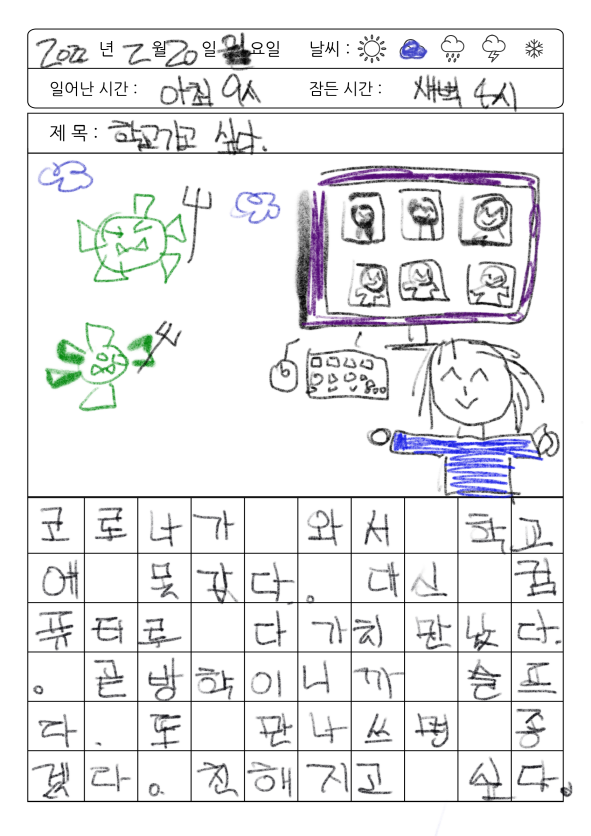 2022 년 2 월 20 일 월요일 날씨 :
일어난 시간 : 아침 9시 잠든 시간 : 새벽 4시
제 목 : 학교가고 싶다.
코로나가 와서 학교
에 못갔다. 대신 컴
퓨터로 다가치 만났다.
. 곧방학이니까 슬프
다. 또 만나쓰면 종
겠다. 친해지고 싶다.